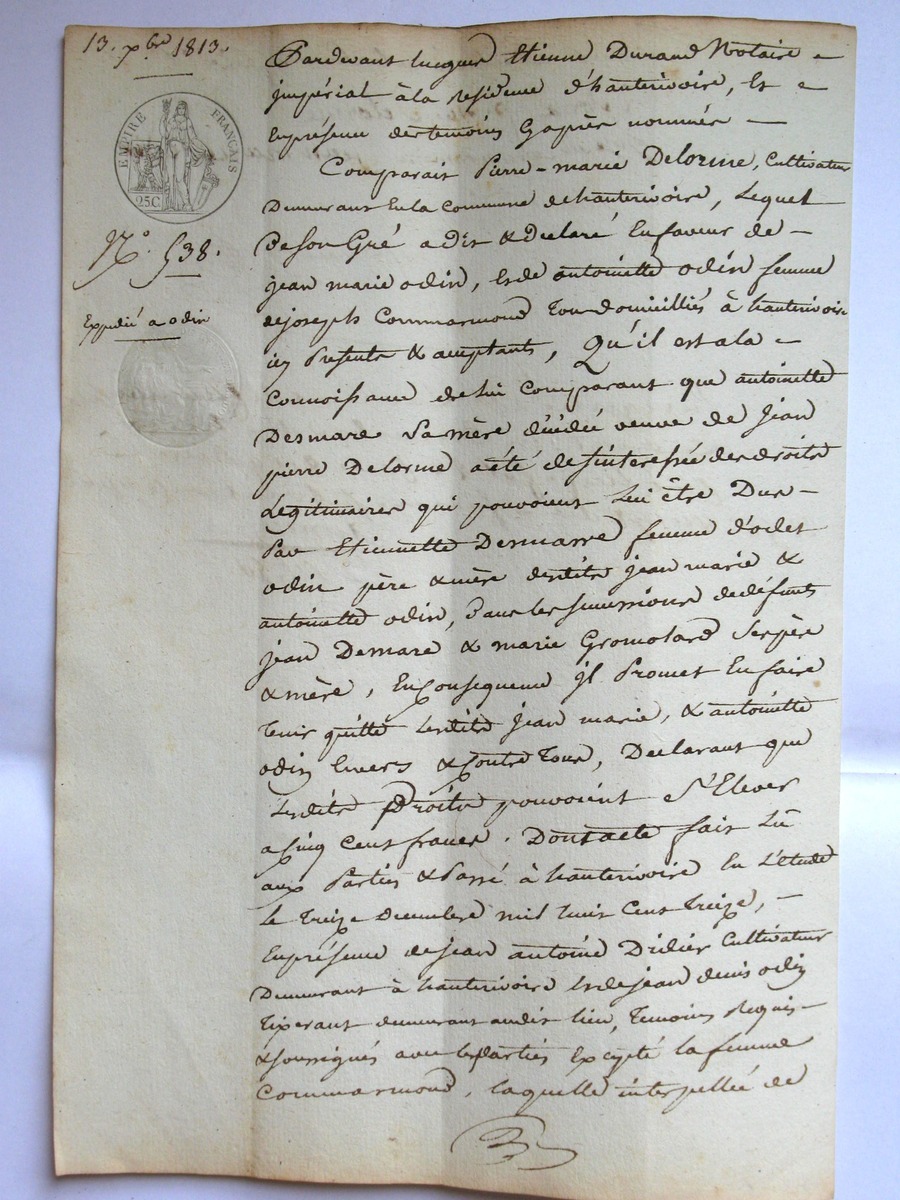 13. xbre 1813.
EMPIRE FRANÇAIS
25C
N°. 538.
Expédié a odin
Pardevant lucquer Etienne Durand Notaire
impérial à la residence d'hauterivoire, Et
En présence des temoins Cy après nommés
Comparait Pierre-marie Delorme, Cultivateur
Demeurant En la Commune de hauterivoire, Lequel
De son Gré a dit & declaré En faveur de
jean marie odin, et de antoinette odin femme
de joseph Commarmond Tous domicilliés à hauterivoire
icy Presents & acceptants, Qu'il est a la
Connoissance de lui Comparant que antoinette
Desmare Sa mère décédée veuve de jean
pierre Delorme a été desinteressée des droits
Légitimaires qui pouvoient Lui être Dus
Par Etiennette Desmarre femme d'odet
odin père & mère desdits jean marie &
antoinette odin, Dans les successions de défunts
jean Demare & marie Gromolard Ses père
& mère, En Consequence il Promet En faire
Tenir quitte Lesdits jean marie, & antoinette
odin Envers & Contre Tous, Declarant que
Lesdits Droits pouvoient S'Elever
a Cinq Cent francs. Dont acte fait Lu
aux Parties & Passé à hauterivoire En L'étude
Le Treize Decembre mil huit Cent Treize,
En présence de jean antoine Didier Cultivateur
Demeurant à hauterivoire et de jean denis odin
Tixerant demeurant audit lieu, Temoins Requis
& soussignés avec les parties Excepté la femme
Commarmond, laquelle interpellée de